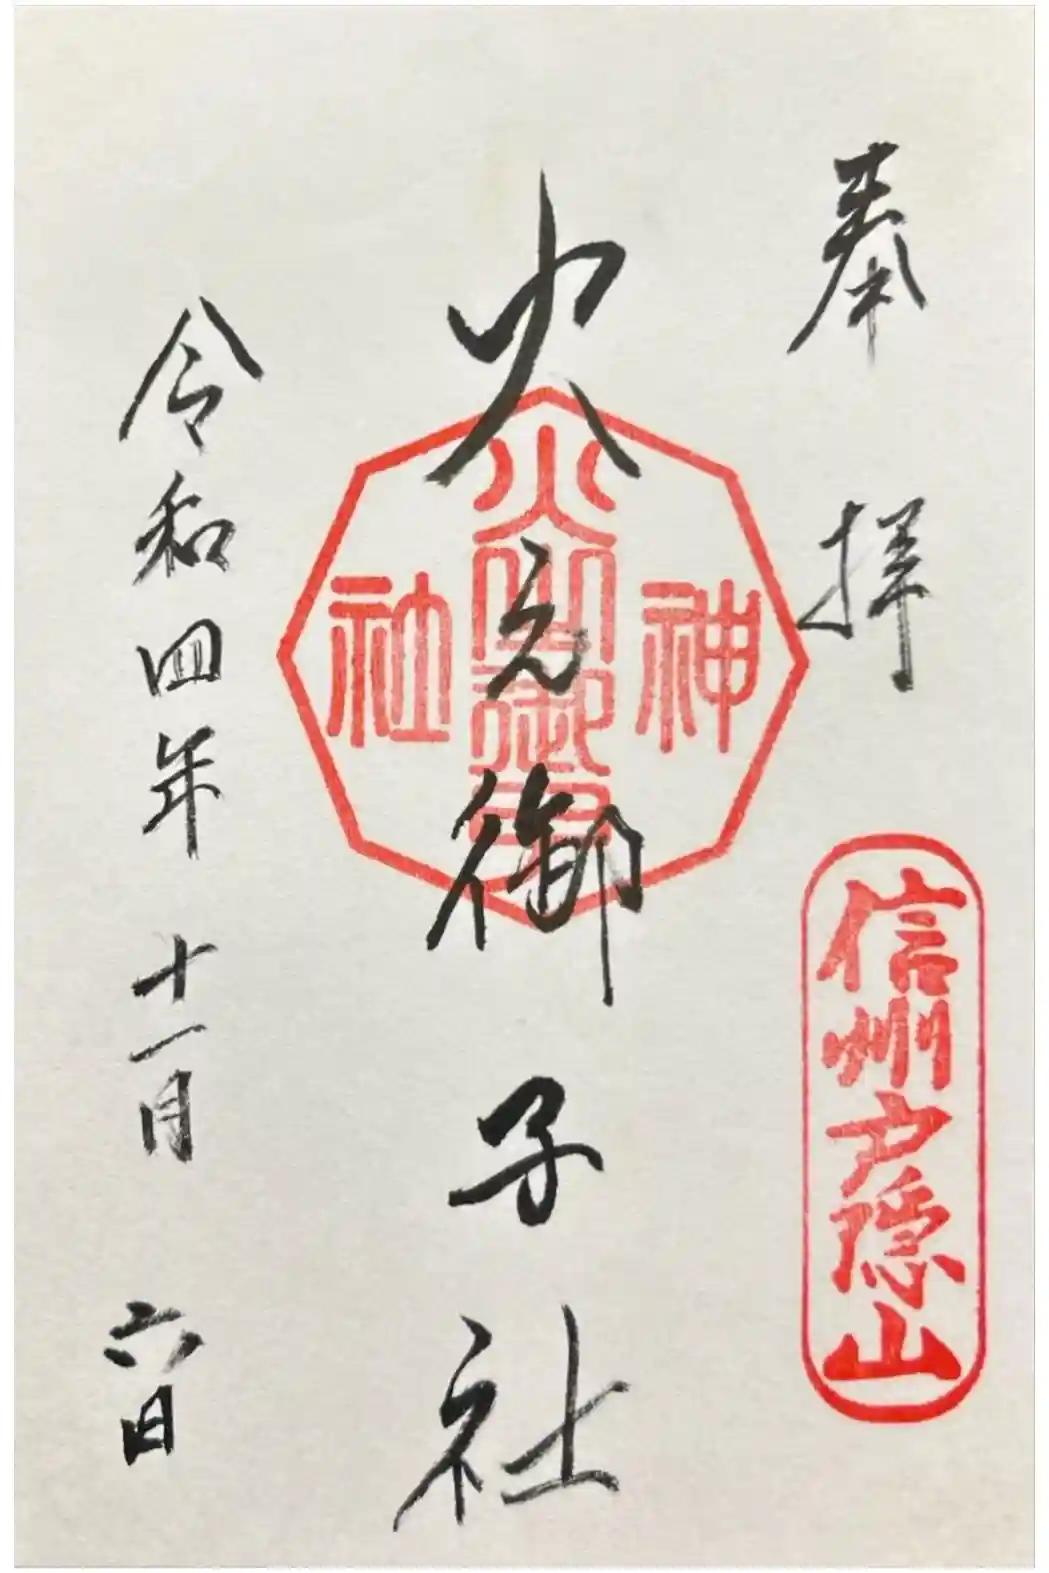 奉拝
信州戸隠山
火之御子社
火之御子
神
社
令和四年十一月六日